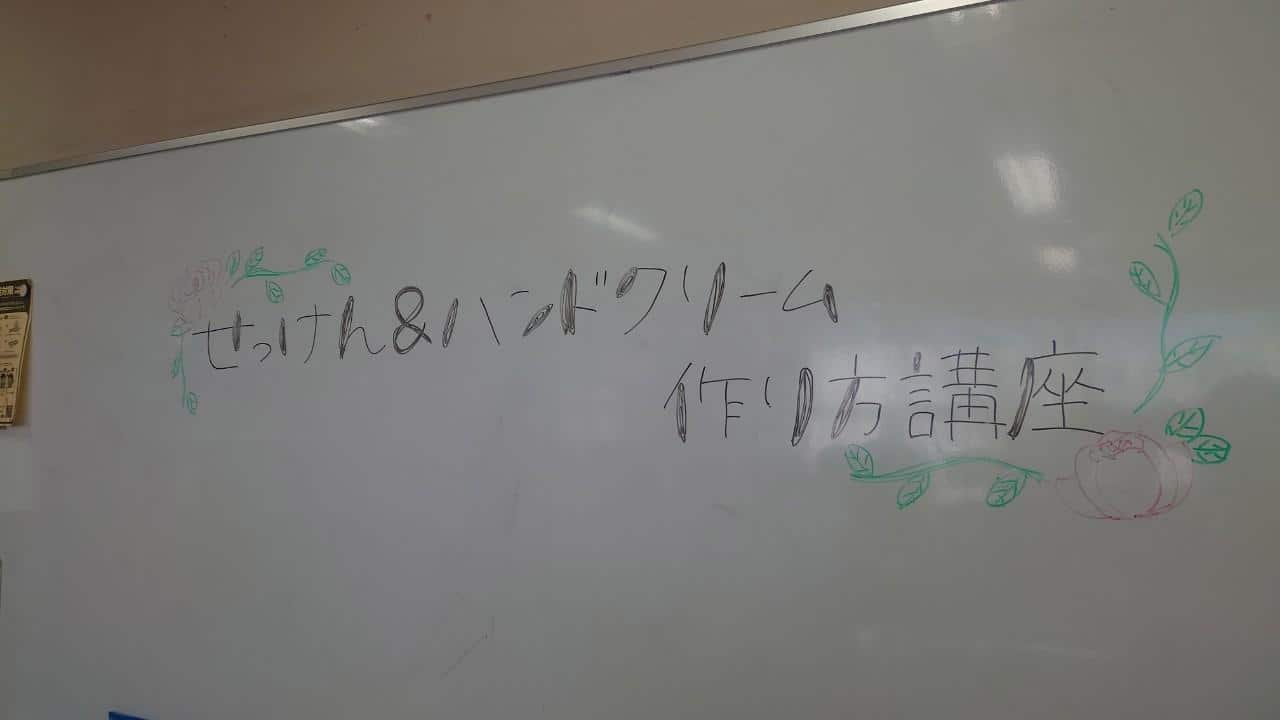 せっけん&ハンドクリーム
作り方講座